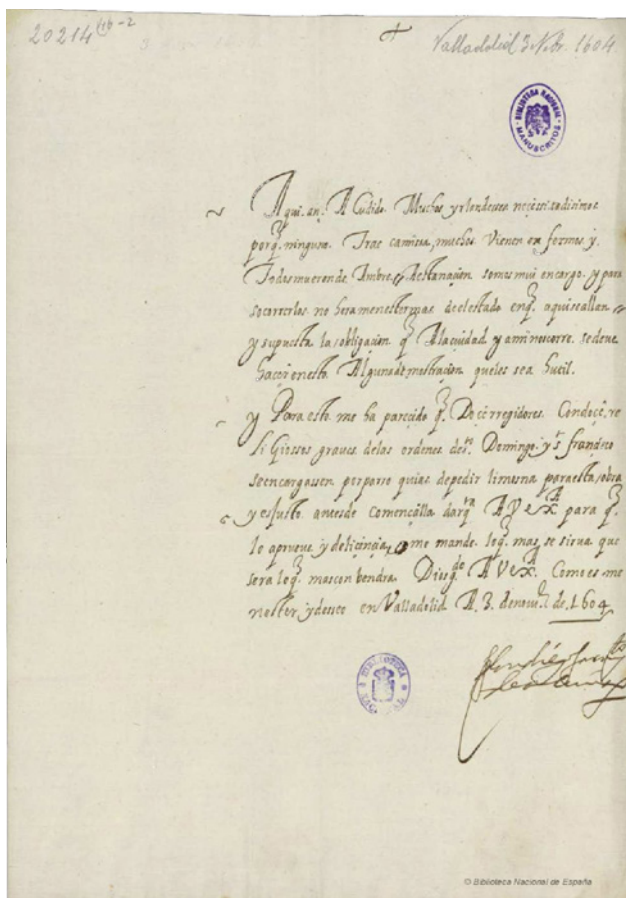 20214 16-2
Valladolid 3 Nobr. 1604
BIBLIOTECA NACIONAL MANUSCRITOS
Aqui. an. A Cudido. Muchos yrlandeses necessitadisimos
porq. ninguno. Trae camissa, muchos Vienen en fermos y.
Todos mueren de Ambre, Desta nacion somos mui en cargo. y para
socorerlos no hera menester mas de el estado en q. aqui se allan
y supuesta la obligacion q. A la ciudad y a mi nos corre. se deve
hacer en esto Alguna demostracion que les sea hutil.
y Para esto me ha parecido q. Doce rregidores. Con doce, re
li Giossos graves de las ordenes de sn. Domingo. y s. francisco
se encargassen por parro quias de pedir limosna para esta, obra
y es justo. antes de començalla dar qta A V exa para q.
lo aprueve y de licincia, o me mande loq. mas, se sirva que
sera loq. mas con bendra. Dios gde A V exa. Como es me
nester y deseo en Valladolid A. 3. de novre. de. 1604
BIBLIOTECA NACIONAL
© Biblioteca Nacional de España